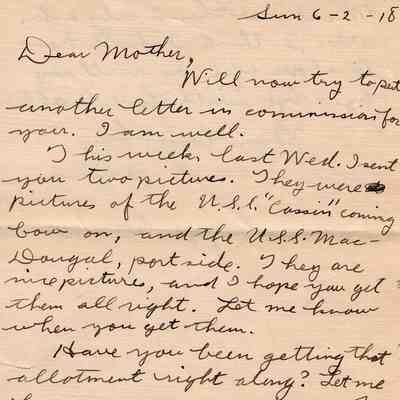 Sun 6-2-18
Dear Mother,
Will now try to put
another letter in commission for
you. I am well.
This week, last Wed. I sent
you two pictures. They were
pictures of the U.S.S. "Cassin" coming
bow on, and the U.S.S. Mac-
Dougal, port side. They are
nice pictures, and I hope you get
them all right. Let me know
when you get them.
Have you been getting that
allotment right along? Let me